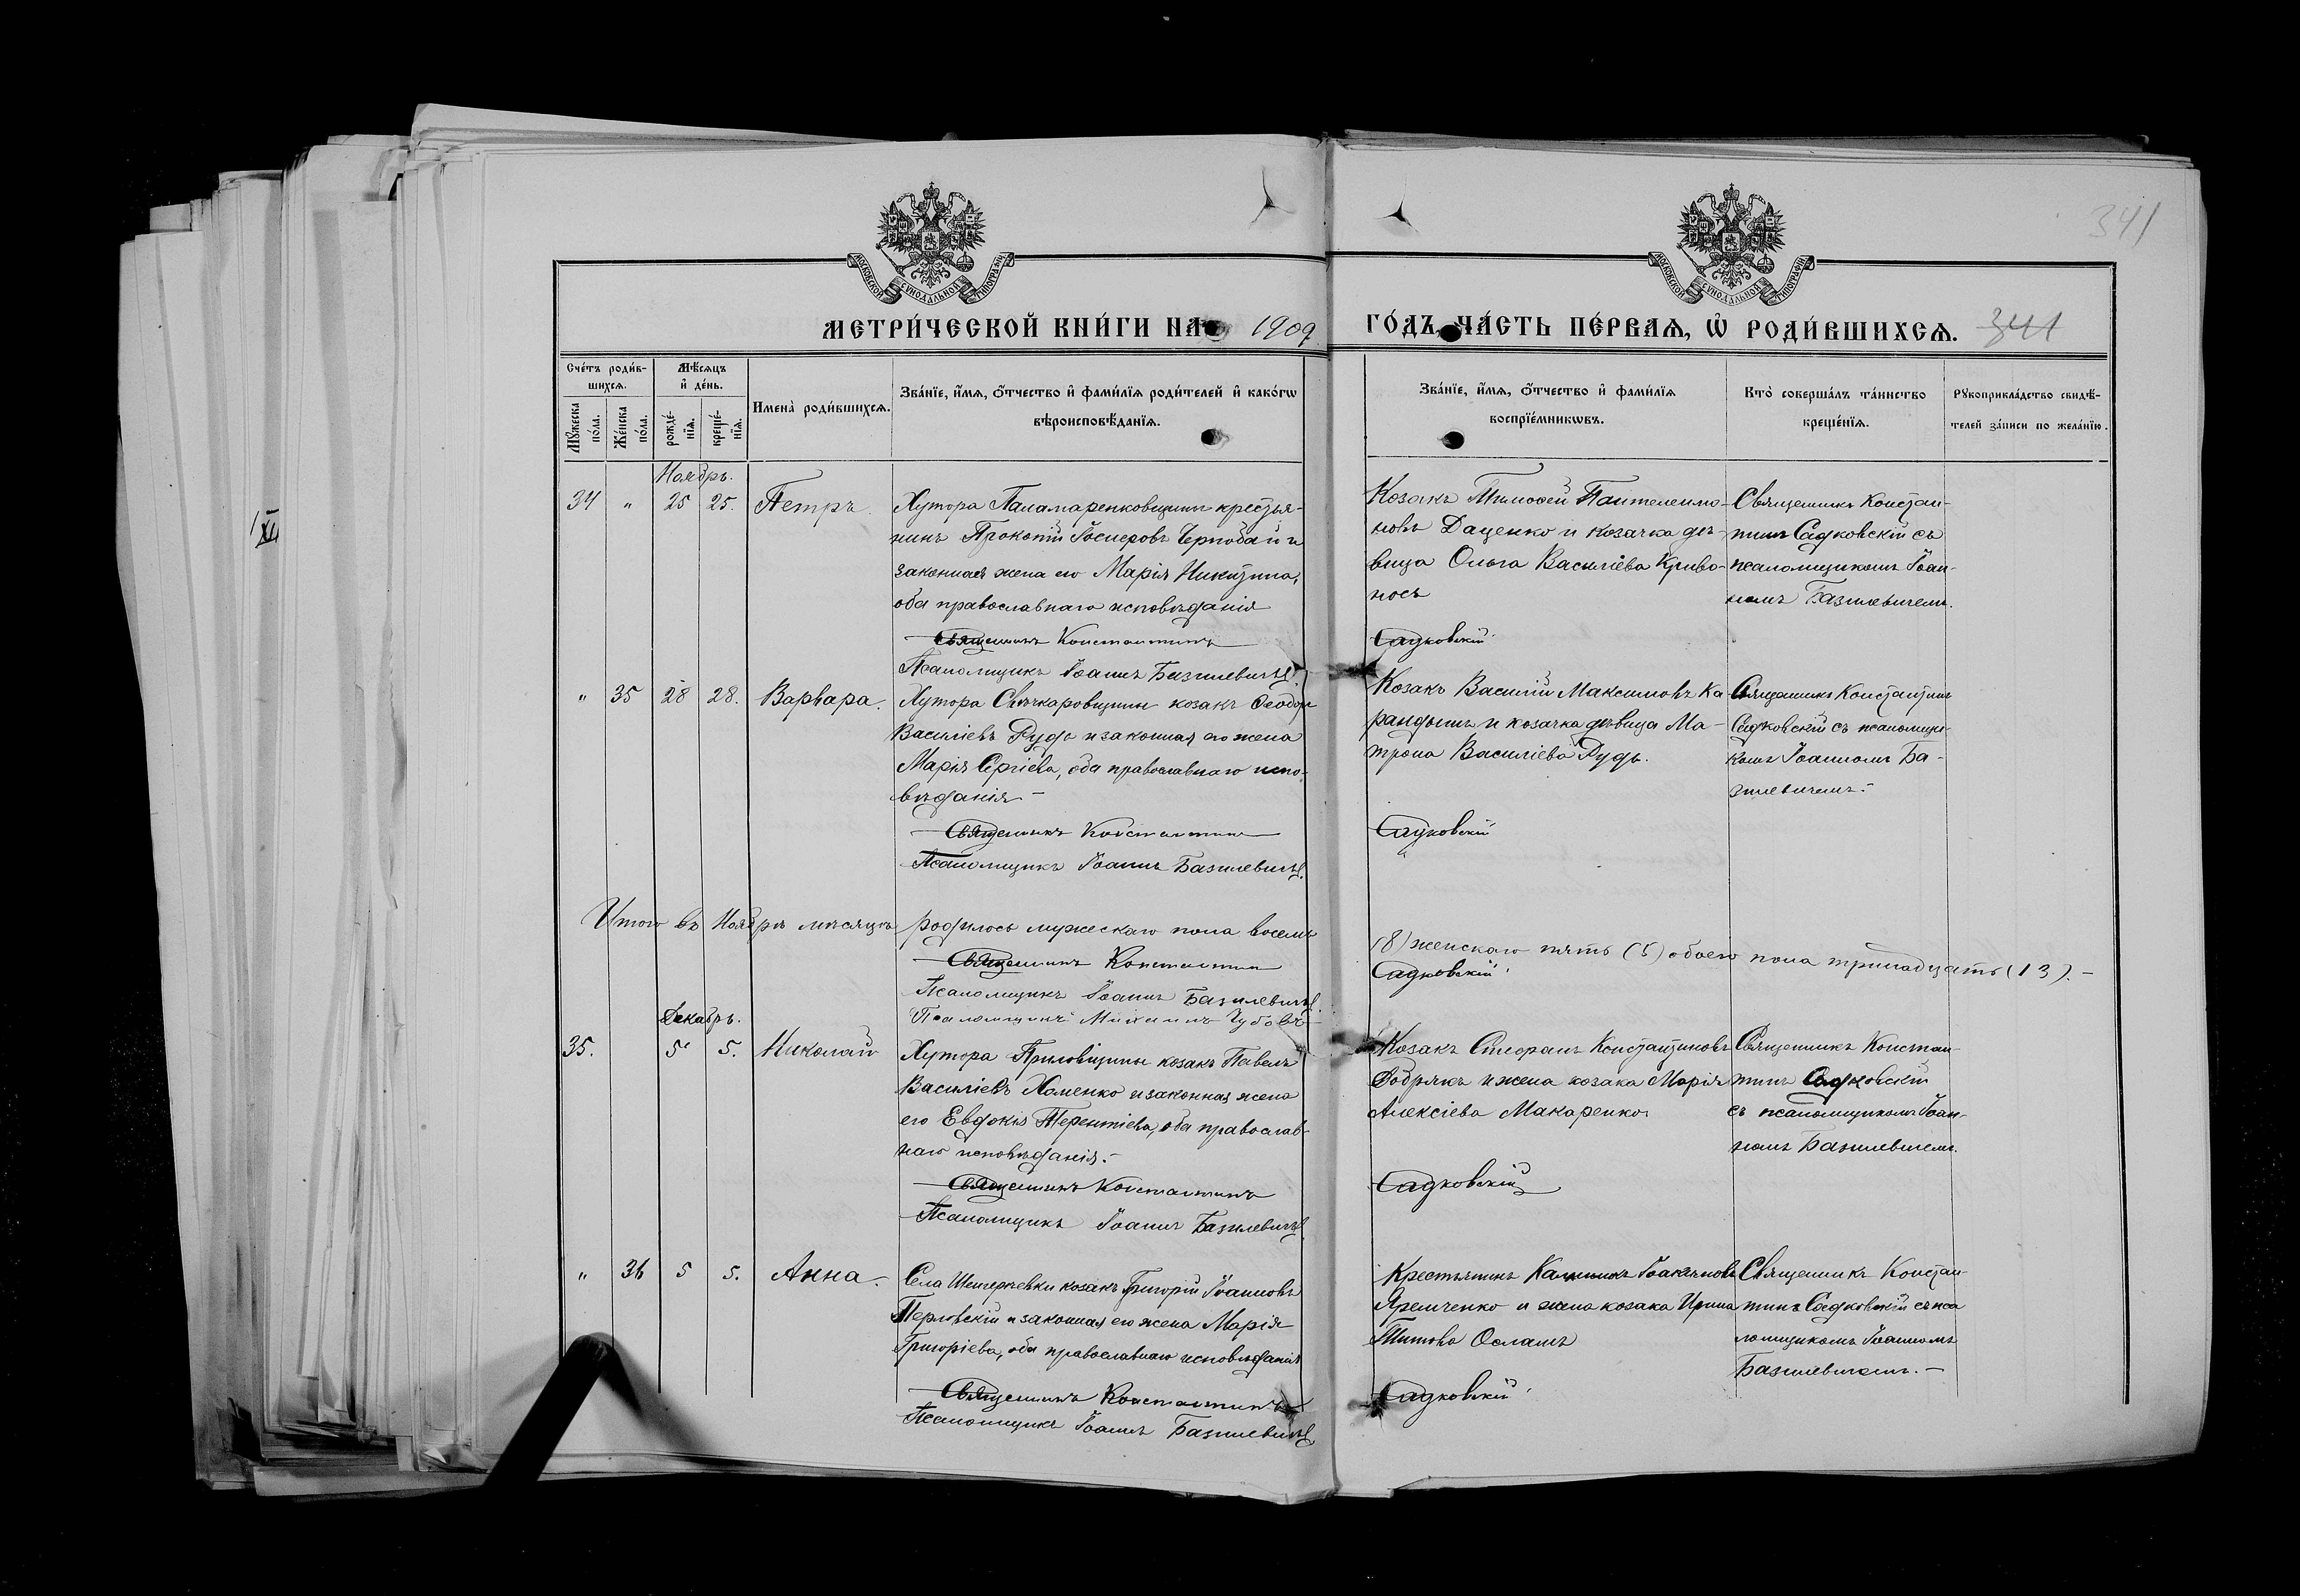 341
МОСКОВСКОЙ СѴНОДАЛЬНОЙ ТИПОГРАФІИ
МОСКОВСКОЙ СѴНОДАЛЬНОЙ ТИПОГРАФІИ
МЕТРИ́ЧЕСКОЙ КНИ́ГИ НА 1909
ГО́ДЪ, ЧА́СТЬ ПЕ́РВАЯ, Ѡ РОДИ́ВШИХСЯ. 341
Сче́тъ роди́в-
шихся.
Мѣ́сяцъ
и҆ де́нь.
Мꙋ́жеска
по́ла.
Же́нска
по́ла.
рожде́-
нїя.
креще́-
нїя.
Имена̀ роди́вшихся.
Зва́нїе, и҆́мя, ѻ҆́тчество и҆ фами́лїя роди́телей и҆ како́гѡ
вѣроисповѣ́данїя.
Зва́нїе, и҆́мя, ѻ҆́тчество и҆ фами́лїя
воспрїе́мникѡвъ.
Кто̀ соверша́лъ та́инство
креще́нїя.
Рꙋкоприкла́дство свидѣ́-
телей за́писи по жела́нїю.
Ноябрь.
34 " 25 25. Петръ.
Хутора Паламаренковщины крестья-
нинъ Прокопій Чернобай и
законная жена его Марія Никитина,
оба православнаго исповѣданія
Священникъ Константинъ
Псаломщикъ Іоаннъ Базилевичъ.
Козакъ Тимоѳей Пантелеимо-
новъ Даценко и козачка дѣ-
вица Ольга Василіева Криво-
носъ
Садковскій
Священникъ Констан-
тинъ Садковскій съ
псаломщикомъ Іоан-
номъ Базилевичемъ.
" 35 28 28. Варвара.
Хутора Свѣчкаровщины козакъ Ѳеодоръ
Василіевъ Рудь и законная его жена
Марія Сергіева, оба православнаго испо-
вѣданія.–
Священникъ Константинъ
Псаломщикъ Іоаннъ Базилевичъ.
Козакъ Василій Максимовъ Ка
рандашъ и козачка дѣвица Ма-
трона Василіева Рудь.
Садковскій
Священникъ Константинъ
Садковскій съ псаломщи-
комъ Іоанномъ Ба-
зилевичемъ.–
Итого въ Ноябрѣ мѣсяцѣ родилось мужескаго пола восемь
(8) женскаго пять (5) обоего пола тринадцать (13).–
Священникъ Константинъ
Садковскій
Псаломщикъ Іоаннъ Базилевичъ.
Псаломщикъ Михаилъ
Декабрь.
35. 5 5. Николай
Хутора козакъ Павелъ
Василіевъ Хоменко и законная жена
его Евдокія Терентіева, оба православ-
наго исповѣданія.–
Священникъ Константинъ
Псаломщикъ Іоаннъ Базилевичъ.
Козакъ Стефанъ Константиновъ
Добрякъ и жена козака Марія
Алексіева Макаренко
Садковскій
Священникъ Констан-
тинъ Садковскій
съ псаломщикомъ Іоан-
номъ Базилевичемъ.
" 36 5 5. Анна.
Села козакъ Григорій Іоанновъ
Перловскій и законная его жена Марія
Григоріева, оба православнаго исповѣданія
Священникъ Константинъ
Псаломщикъ Іоаннъ Базилевичъ
Крестьянинъ
Яремченко и жена козака Ирина
Титова Осламъ
Садковскій
Священникъ Констан-
тинъ Садковскій съ пса
ломщикомъ Іоанномъ
Базилевичемъ.–